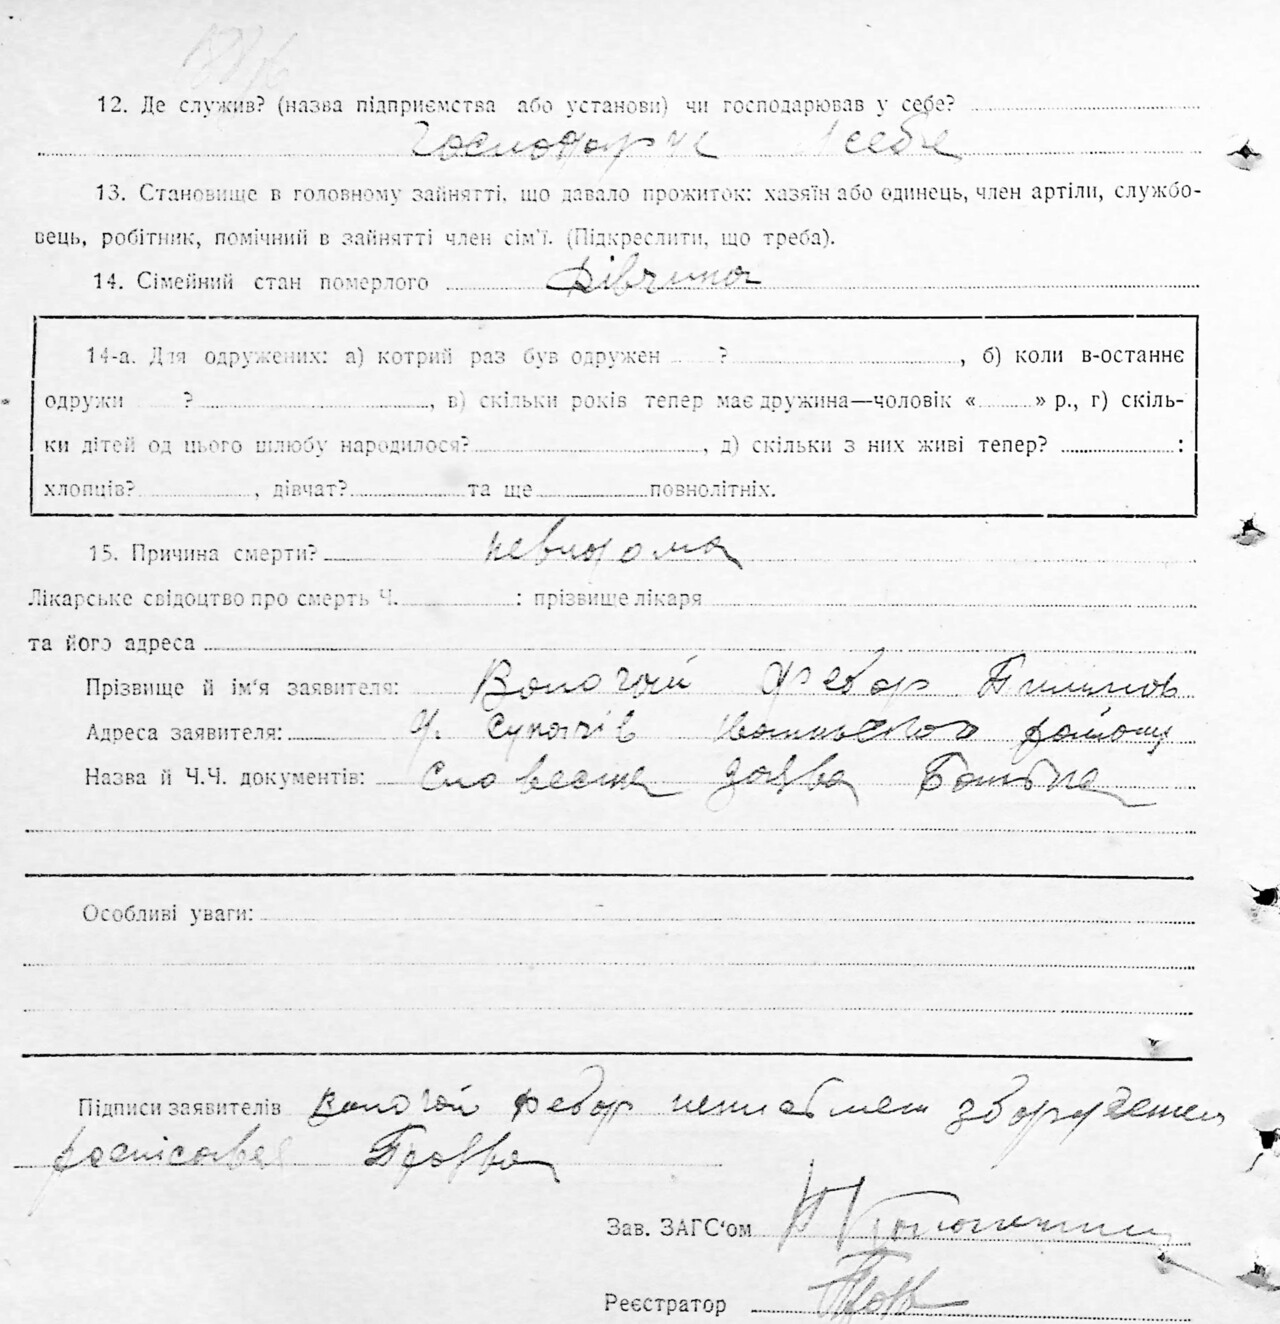 12. Де служив? (назва підприємства або установи) чи господарював у себе?
у себе
13. Становище в головному зайнятті, що давало прожиток: хазяїн або одинець, член артіли, службо-
вець, робітник, помічний в зайнятті член сім'ї. (Підкреслити, що треба).
14. Сімейний стан померлого дівчина
14-а. Для одружених: а) котрий раз був одружен ?, б) коли в-останнє
одружи ?, в) скільки років тепер має дружина—чоловік « » р., г) скіль-
ки дітей од цього шлюбу народилося?, д) скільки з них живі тепер? :
хлопців?, дівчат? та ще повнолітніх.
15. Причина смерти? невидома
Лікарське свідоцтво про смерть Ч. : прізвище лікаря
та його адреса
Прізвище й ім'я заявителя: Вологай Федор
Адреса заявителя: району
Назва й Ч.Ч. документів: Словесна заява Батька
Особливі уваги:
Підписи заявителів Вологай Федор
Зав. ЗАГС'ом
Реєстратор